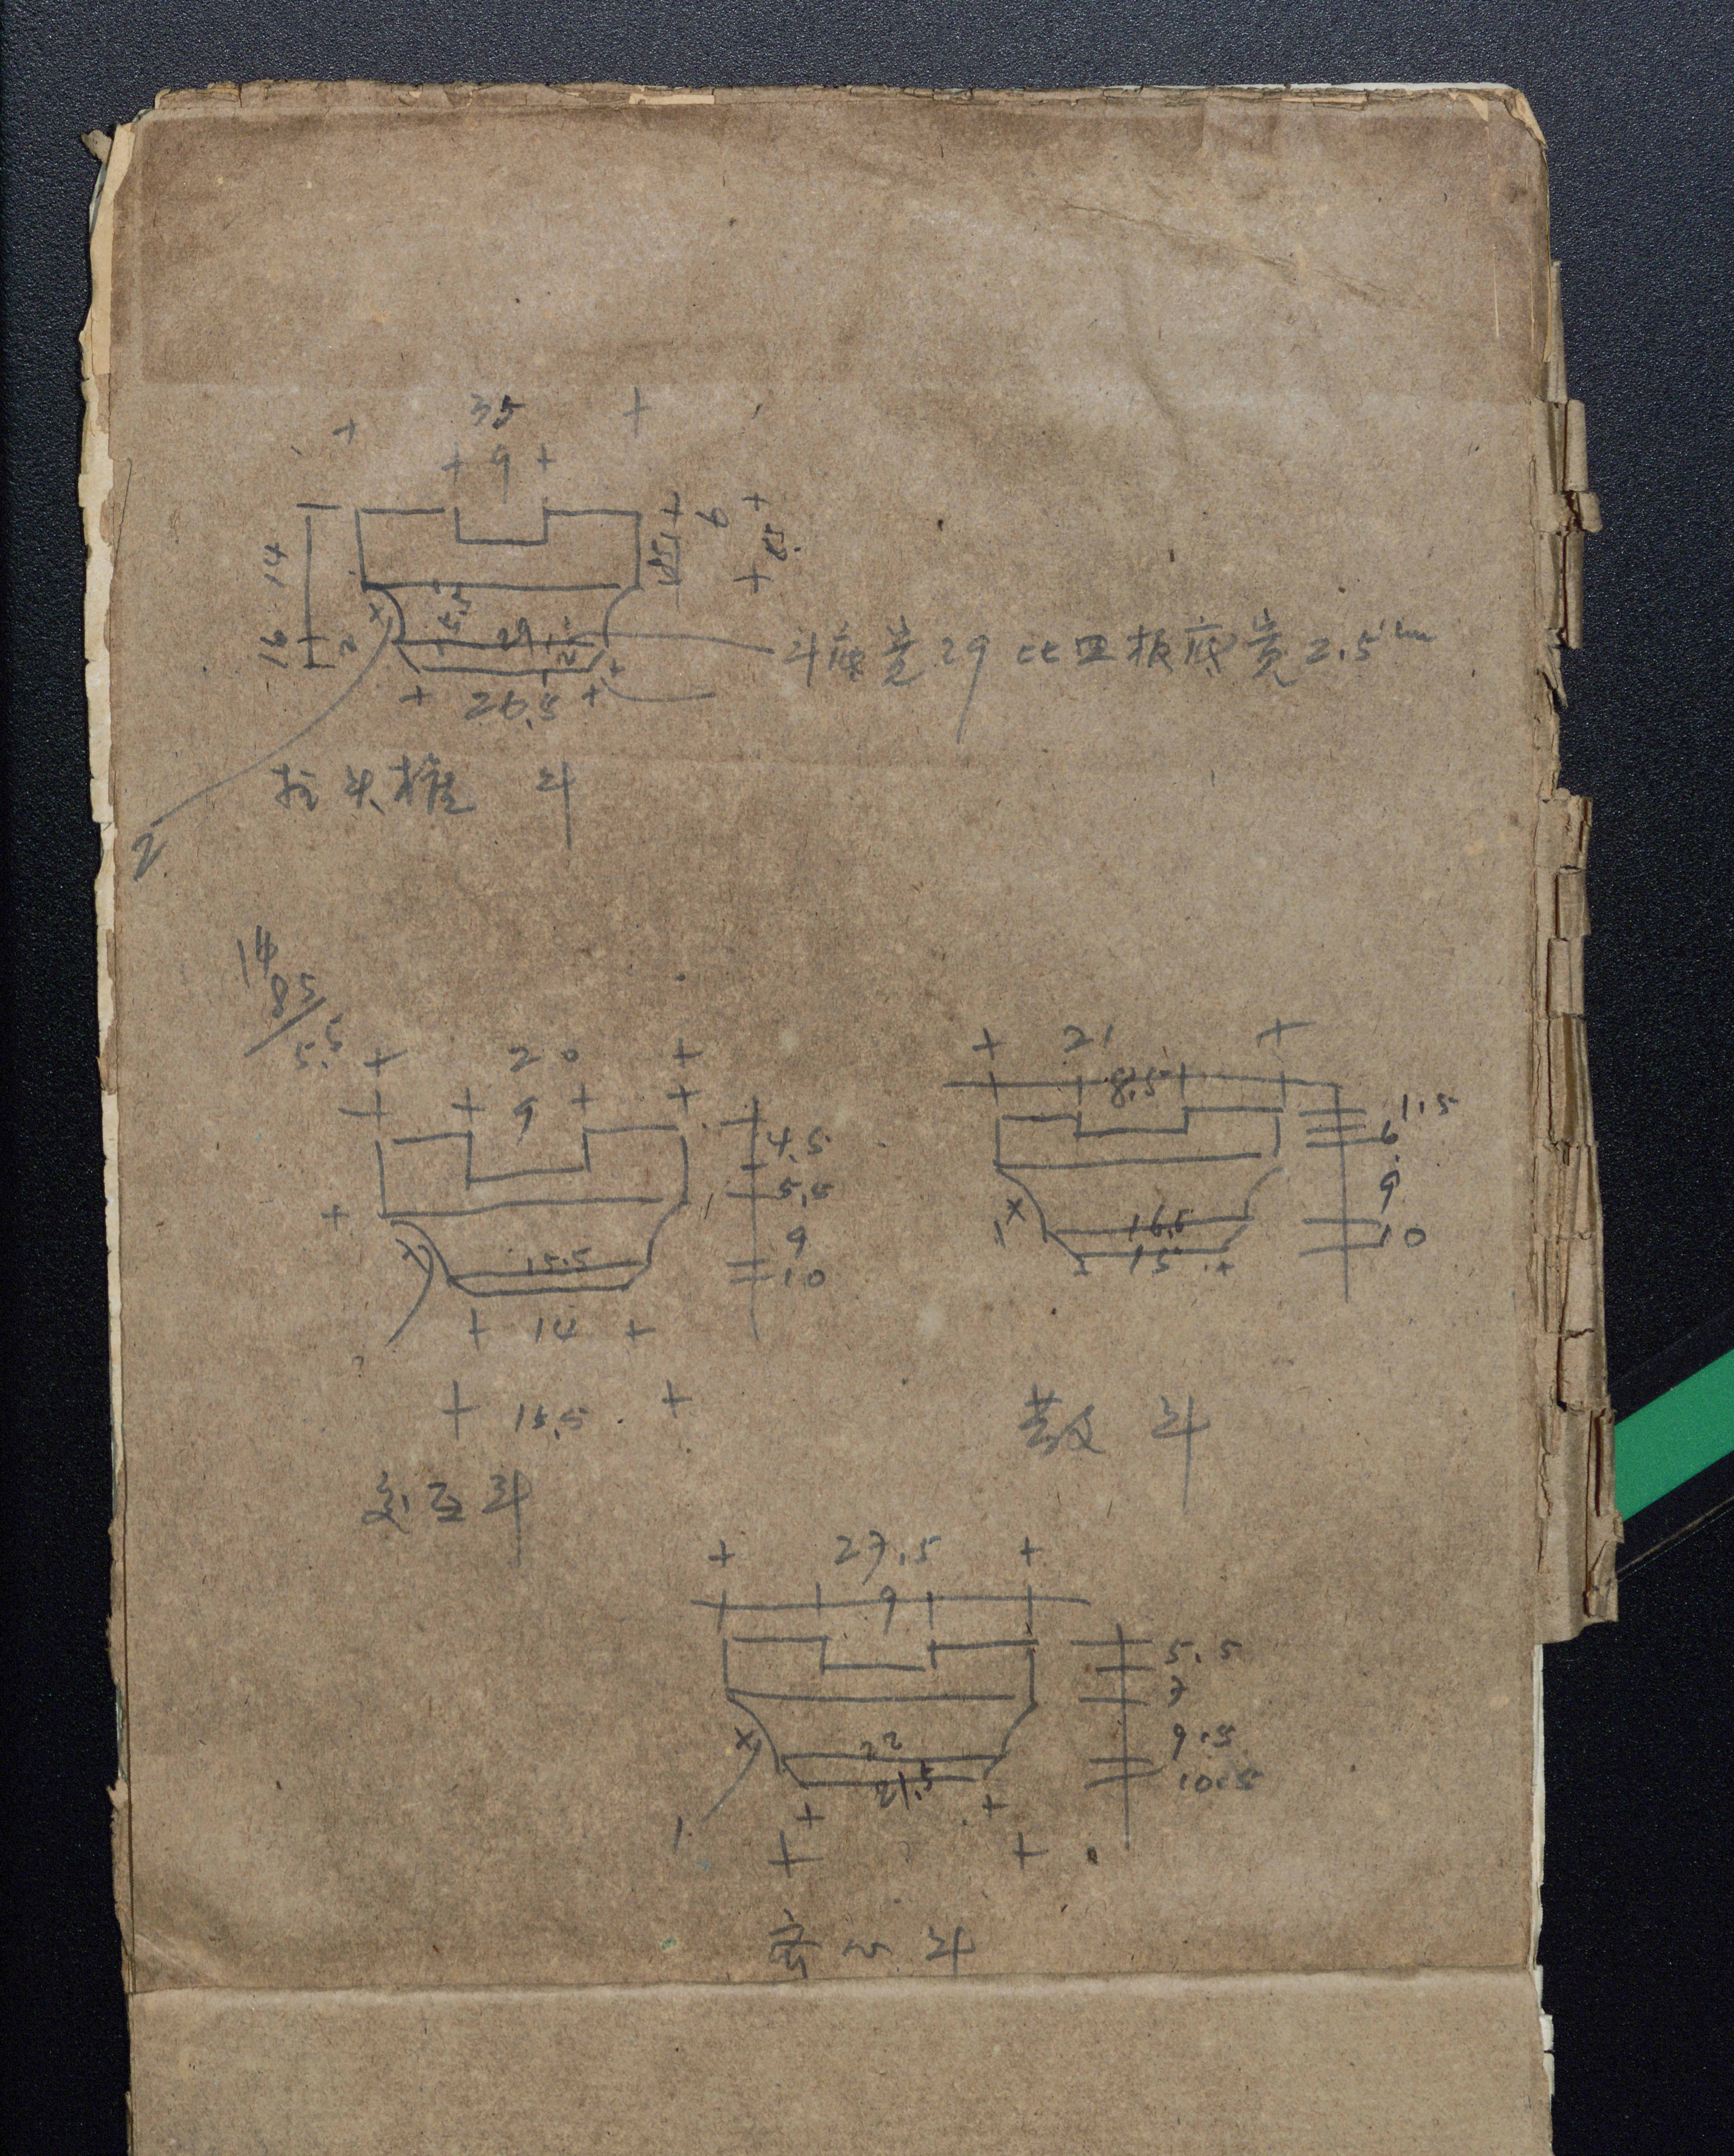 35
9
9
14
16
2
29
26.5
斗底宽29 比皿板底宽2.5cm
斗
2
14
8.5
5.5
20
9
4.5
5.5
9
10
15.5
14
15.5
交互斗
21
8.5
1.5
6
9
10
16.5
15
1
散 斗
27.5
9
5.5
7
9.5
10.5
22
21.5
1
齐心斗